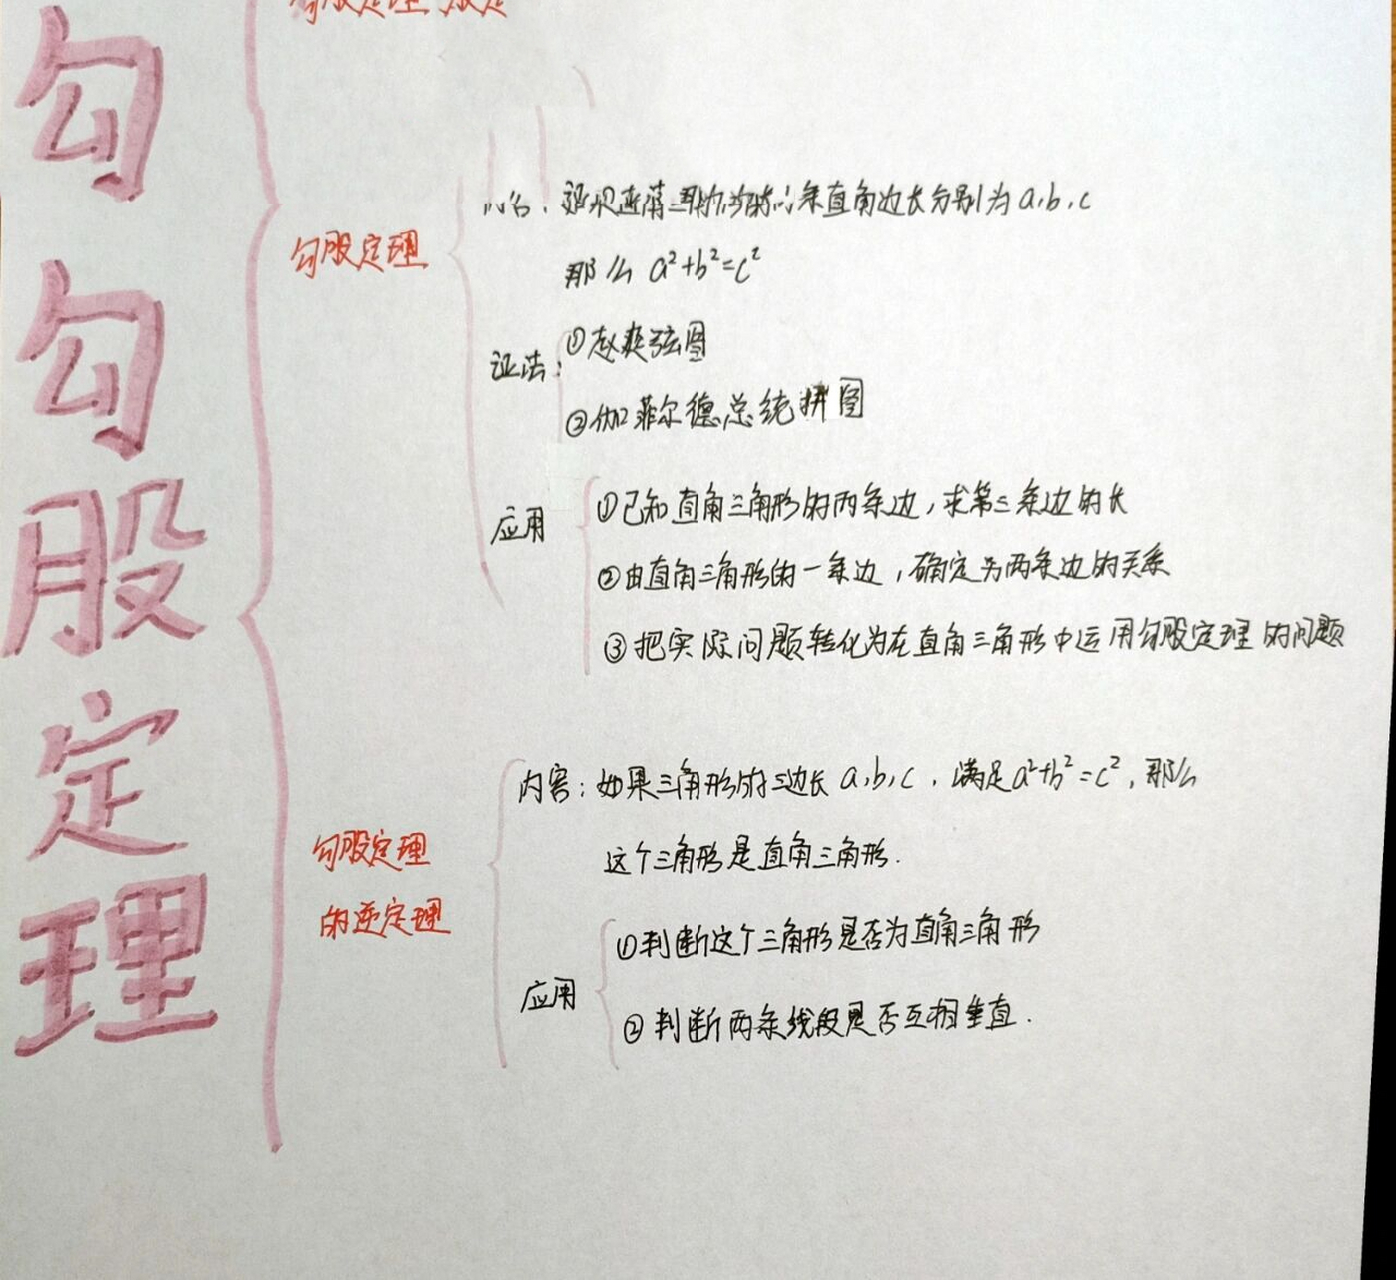 勾
勾
股
定
理
勾股定理
条直角边长分别为a,b,c
那么 a²+b²=c²
证法:
①赵爽弦图
②伽菲尔德总统拼图
应用
①已知直角三角形的两条边,求第三条边的长
②由直角三角形的一条边,确定另两条边的关系
③把实际问题转化为在直角三角形中运用勾股定理的问题
勾股定理
的逆定理
内容:如果三角形的三边长a,b,c,满足a²+b²=c²,那么
这个三角形是直角三角形.
应用
①判断这个三角形是否为直角三角形
②判断两条线段是否互相垂直.